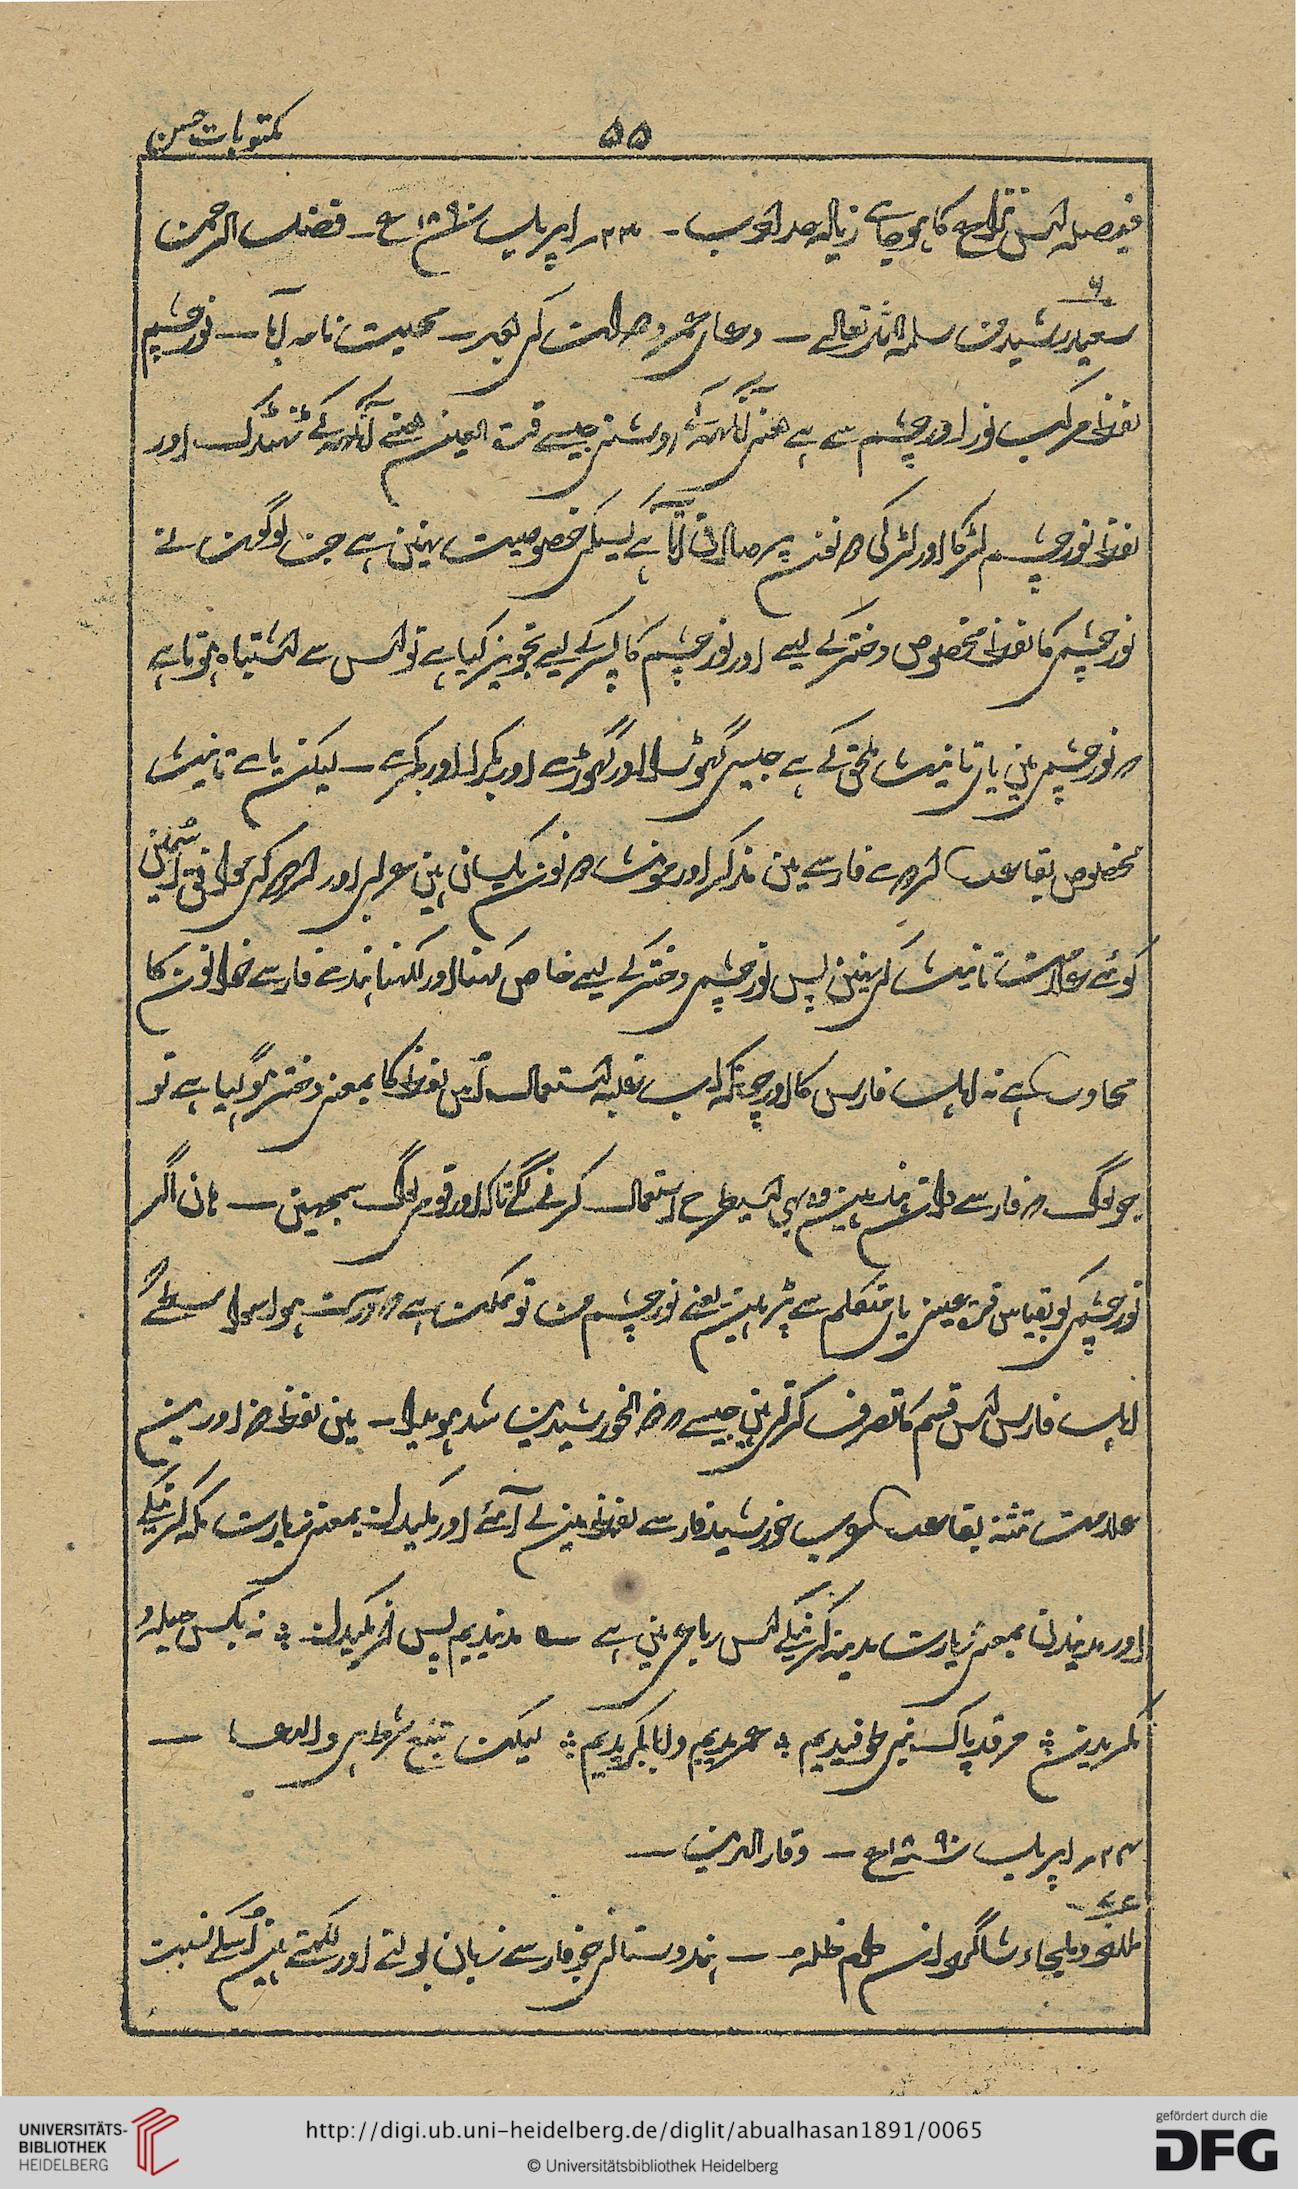 مکتوبات حسن
۵۵
فیصلہ اس نزاع کا ہوجاے زیادہ حد ادب ـ ۲۳؍ اپریل سنہ ۱۸۹۰ع ـ فضل الرحمن
۶
سعید رشید من سلمہ اللہ تعالی ـ دعای عمر و دولت کی بعد ـ محبت نامہ آیا ـ نورچشم
لفظ مرکب نور اور چشم سے ہے معنی آنکھہ کے روشنی جیسے قرۃ العین معنے آنکھہ کے ٹھنڈک اور
لفظ نورچشم لڑکا اور لڑکی دونون پر صادق آتا ہے لیکن خصوصیت نہین ہے جن لوگون نے
نورچشمی کا لفظ مخصوص دختر کے لیے اور نورچشم کا پسر کے لیے تجویز کیا ہے تو اس سے اشتباہ ہوتا ہے
نورچشمی مین یای تانیث ملحق کے ہے جیسی گھوڑا اور گھوڑے اور بکرا اور بکرے ـ لیکن یاے تانیث
مخصوص بقاعدہ اردو ہے فارسے مین مذکر اور مونث دونون یکسان ہین عربی اور اردو کی موافق اسمین
کوئے علامت تانیث کی نہین پس نورچشمی دختر کے لیے خاص کہنا اور لکھنا ہندے فارسے خوانون کا
محاورہ ہے نہ اہل فارس کا اور چونکہ اب غلبہ استعمال اس لفظ کا بمعنی دختر ہوگیا ہے تو
جو لوگ فارسے دان ہند ہین وہ بھی اسیطرح استعمال کرنے لگے تاکہ اور قومی لوگ سمجھین ـ ہان اگر
نورچشمی کو بقیاس قرۃ عینی یای متکلم سے پڑہین یعنے نورچشم من تو ممکن ہے درست ہو اسواسطے کہ
اہل فارس اس قسم کا تصرف کرتی ہین جیسے ضو الخورشیدین شد ہویدا ـ مین لفظ اور مین
علامت تثنہ بقاعدہ عرب خورشید فارسے لفظ مین لے آئے اور مکیدن بمعنی زیارت مکہ کرنیکے
اور مدنیدن بمعنی زیارت مدینہ کرنیکے اس رباعی مین ہے ـ مدنیدیم پس از مکیدن ؞ نہ بکس حیلہ و
مکریدن ؞ مرقد پاک نبی طوفیدیم ؞ عمریدیم و ابابکریدیم ؞ لیکن تتبع شرط ہی والدعا ـ
۲۴؍ اپریل سنہ ۱۸۹۰ع ـ وقار الدین ـ
۷
ملجا و شاگردان دام ظلہ ـ ہندوستانی جو فارسے زبان بولتے اور لکھتے ہین اسکے نسبت
UNIVERSITÄTS-
BIBLIOTHEK
HEIDELBERG
http://digi.ub.uni-heidelberg.de/diglit/abualhasan1891/0065
© Universitätsbibliothek Heidelberg
gefördert durch die
DFG